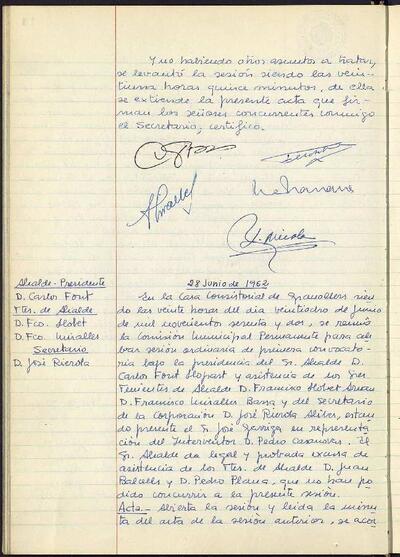 Y no habiendo otros asuntos a tratar,
se levantó la sesión siendo las vein-
tiuna horas quince minutos, de ella
se extiende la presente acta que fir-
man los señores concurrentes conmigo
el Secretario, certifico.
28 Junio de 1962
Alcalde-Presidente
D. Carlos Font
Ttes. de Alcalde
D. Fco. Llobet
D. Fco. Miralles
Secretario
D. José Rierola
En la Casa Consistorial de Granollers sien
do las veinte horas del día veintiocho de Junio
de mil novecientos sesenta y dos, se reunió
la Comisión Municipal Permanente para cele
brar sesión ordinaria de primera convocato
ria bajo la presidencia del Sr. Alcalde D.
Carlos Font Llopart y asistencia de los Sres
Tenientes de Alcalde D. Francisco Llobet
D. Francisco Miralles Barra y del Secretario
de la Corporación D. José Rierola estan
do presente el Sr. José en representa
ción del Interventor D. Pedro Casanovas. El
Sr. Alcalde da legal y probada excusa de
asistencia de los Ttes. de Alcalde D. Juan
y D. Pedro que no han po
dido concurrir a la presente sesión.
Acta.- Abierta la sesión y leída la minu
ta del acta de la sesión anterior, se acor